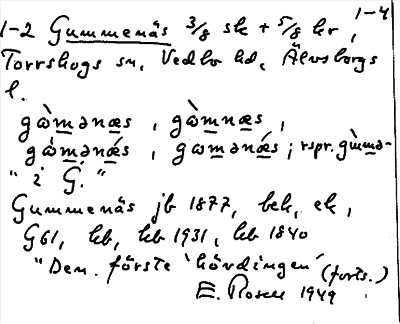 1-4
1-2 Gummenäs 3/8 sk + 5/8 kr,
Torrskogs sn, Vedbo hd, Älvsborgs
l.
gωmənæs, gωmnæs,
gωmənæs, gωmənæs; rspr. gɯmə-
" i G. "
Gummenäs jb 1877, bek, ek,
G61, kb, kb 1931, kb 1840
"Den förste 'hövdingen' (forts.)
E. Rosell 1949